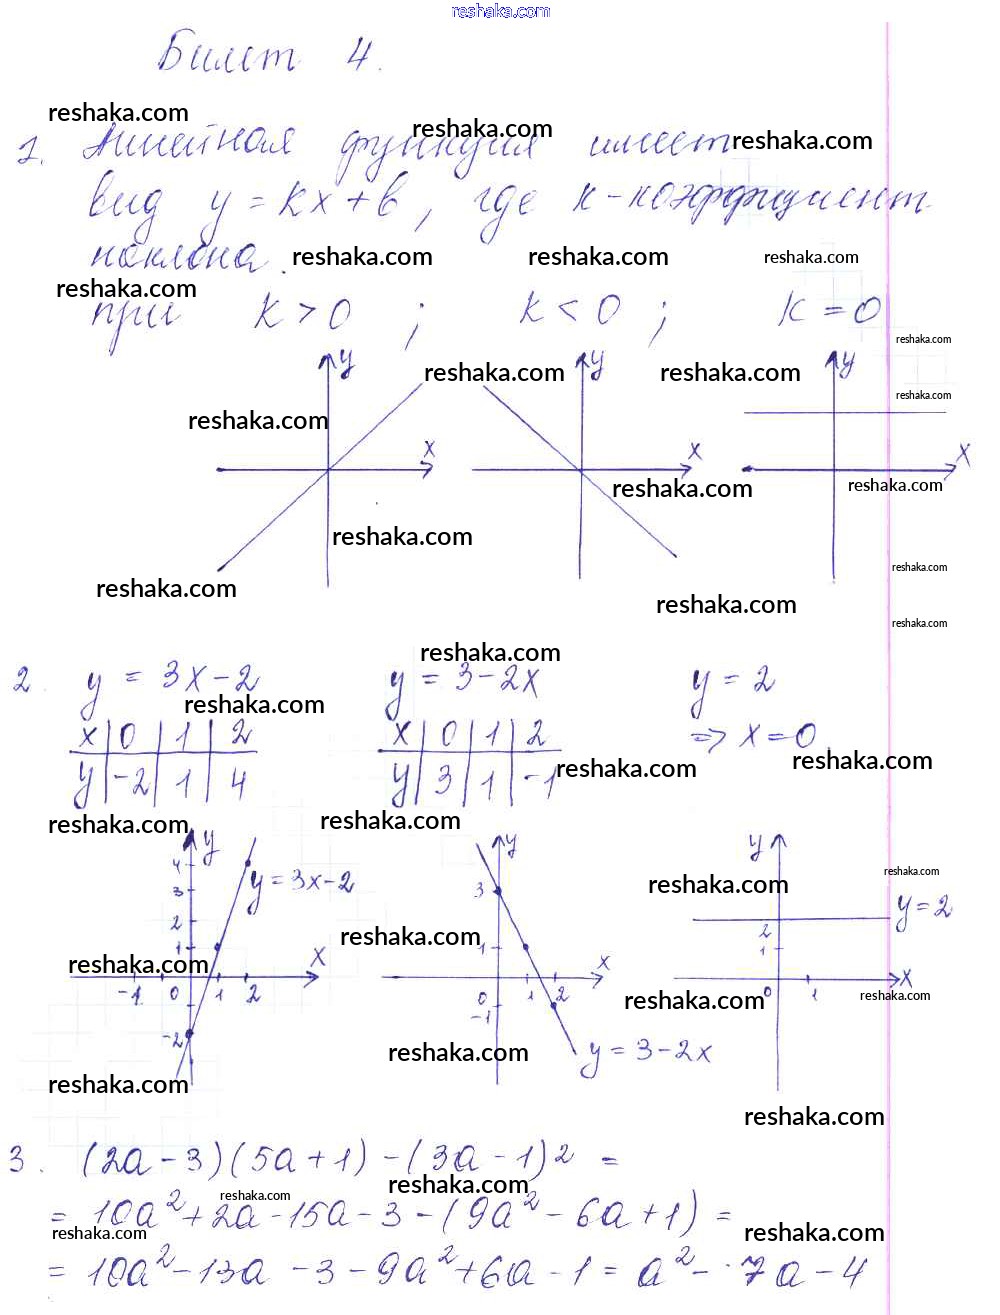 reshaka.com
Билет 4.
reshaka.com
1. Линейная функция имеет
reshaka.com reshaka.com
вид y = kx + b, где k-коэффициент
наклона.
reshaka.com reshaka.com reshaka.com
reshaka.com
при k > 0 ; k < 0 ; k = 0
reshaka.com
y y y
reshaka.com reshaka.com
reshaka.com
reshaka.com
x x x
reshaka.com reshaka.com
reshaka.com
reshaka.com
reshaka.com
reshaka.com
reshaka.com
reshaka.com
2. y = 3x - 2 y = 3 - 2x y = 2
reshaka.com
x 0 1 2 x 0 1 2 => x = 0
reshaka.com reshaka.com
y -2 1 4 y 3 1 -1
reshaka.com reshaka.com
y y y
4
reshaka.com
y = 3x - 2
reshaka.com
3 3
y = 2
2 2
reshaka.com
1 1 1
reshaka.com
x x x
-1 0 1 2 0 1 2 0 1
reshaka.com reshaka.com
-1
-2
reshaka.com y = 3 - 2x
reshaka.com
reshaka.com
3. (2a - 3)(5a + 1) - (3a - 1)2 =
reshaka.com
reshaka.com
= 10a² + 2a - 15a - 3 - (9a² - 6a + 1) =
reshaka.com reshaka.com
= 10a² - 13a - 3 - 9a² + 6a - 1 = a² - 7a - 4